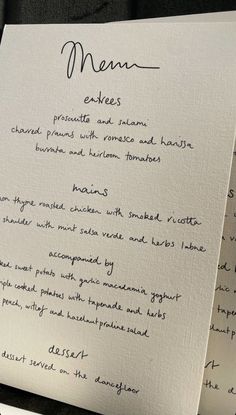 Menu
entrees
prosciutto and salami
charred prawns with romesco and harissa
burrata and heirloom tomatoes
mains
on thyme roasted chicken with smoked ricotta
shoulder with mint salsa verde and herbs labne
accompanied by
ked sweet potato with garlic macadamia yoghurt
ple cooked potatoes with tapenade and herbs
peach, witlof and hazelnut praline salad
dessert
dessert served on the dancefloor